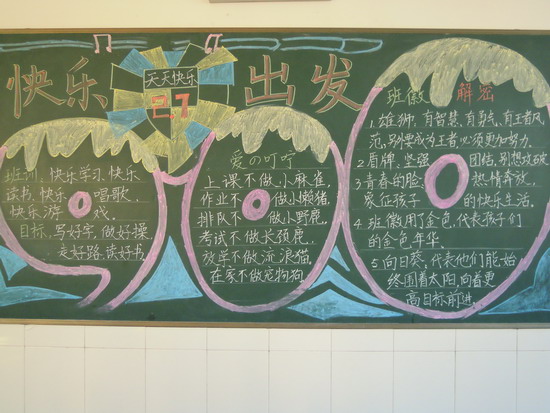 快乐
天天快乐
2.7
出发
班训：快乐学习，快乐
读书，快乐唱歌，
快乐游戏。
目标：写好字，做好操，
走好路，读好书。
爱の叮咛
上课不做小麻雀，
作业不做小懒猪，
排队不做小野鹿，
考试不做长颈鹿，
放学不做流浪猫，
在家不做宠物狗。
班徽 解密
1、雄狮：有智慧，有勇气，有王者风
范，别要成为王者必须更加努力。
2、盾牌：坚强 团结，别想攻破
3、青春的脸：热情奔放，
象征孩子的快乐生活。
4、班徽用了金色，代表孩子们
的金色年华。
5、向日葵：代表他们能始
终围着太阳，向着更
高目标前进。